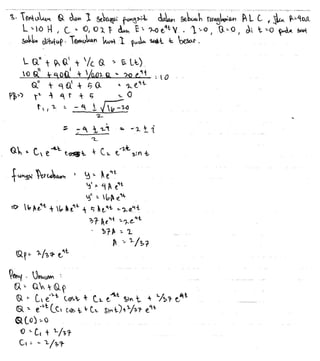 3. Tentukan Q dan I sebagai fungsi t dalam sebuah rangkaian RLC, jika R=40Ω
L=10 H, C = 0,02 F dan E = 20e⁴ᵗ V. I=0, Q=0, di t=0 pada saat
saklar ditutup. Temukan I pada saat t besar.
L Q" + R Q' + 1/c Q = E(t)
10 Q" + 40Q' + 1/0.02 Q = 20 e⁴ᵗ : 10
Q" + 4Q' + 5Q = 2e⁴ᵗ
PK => r² + 4r + 5 = 0
r₁,₂ = -4 ± √16-20
2
= -4 ± 2i = -2 ± i
2
Qh = C₁e⁻²ᵗ cos t + C₂ e⁻²ᵗ sin t
fungsi Percobaan : y = Ae⁴ᵗ
y' = 4Ae⁴ᵗ
y" = 16Ae⁴ᵗ
=> 16Ae⁴ᵗ + 16Ae⁴ᵗ + 5Ae⁴ᵗ = 2e⁴ᵗ
37 Ae⁴ᵗ = 2e⁴ᵗ
37A = 2
A = 2/37
Qp = 2/37 e⁴ᵗ
Peny. Umum :
Q = Qh + Qp
Q = C₁e⁻²ᵗ cos t + C₂ e⁻²ᵗ sin t + 2/37 e⁴ᵗ
Q = e⁻²ᵗ (C₁ cos t + C₂ sin t) + 2/37 e⁴ᵗ
Q(0) = 0
0 = C₁ + 2/37
C₁ = -2/37